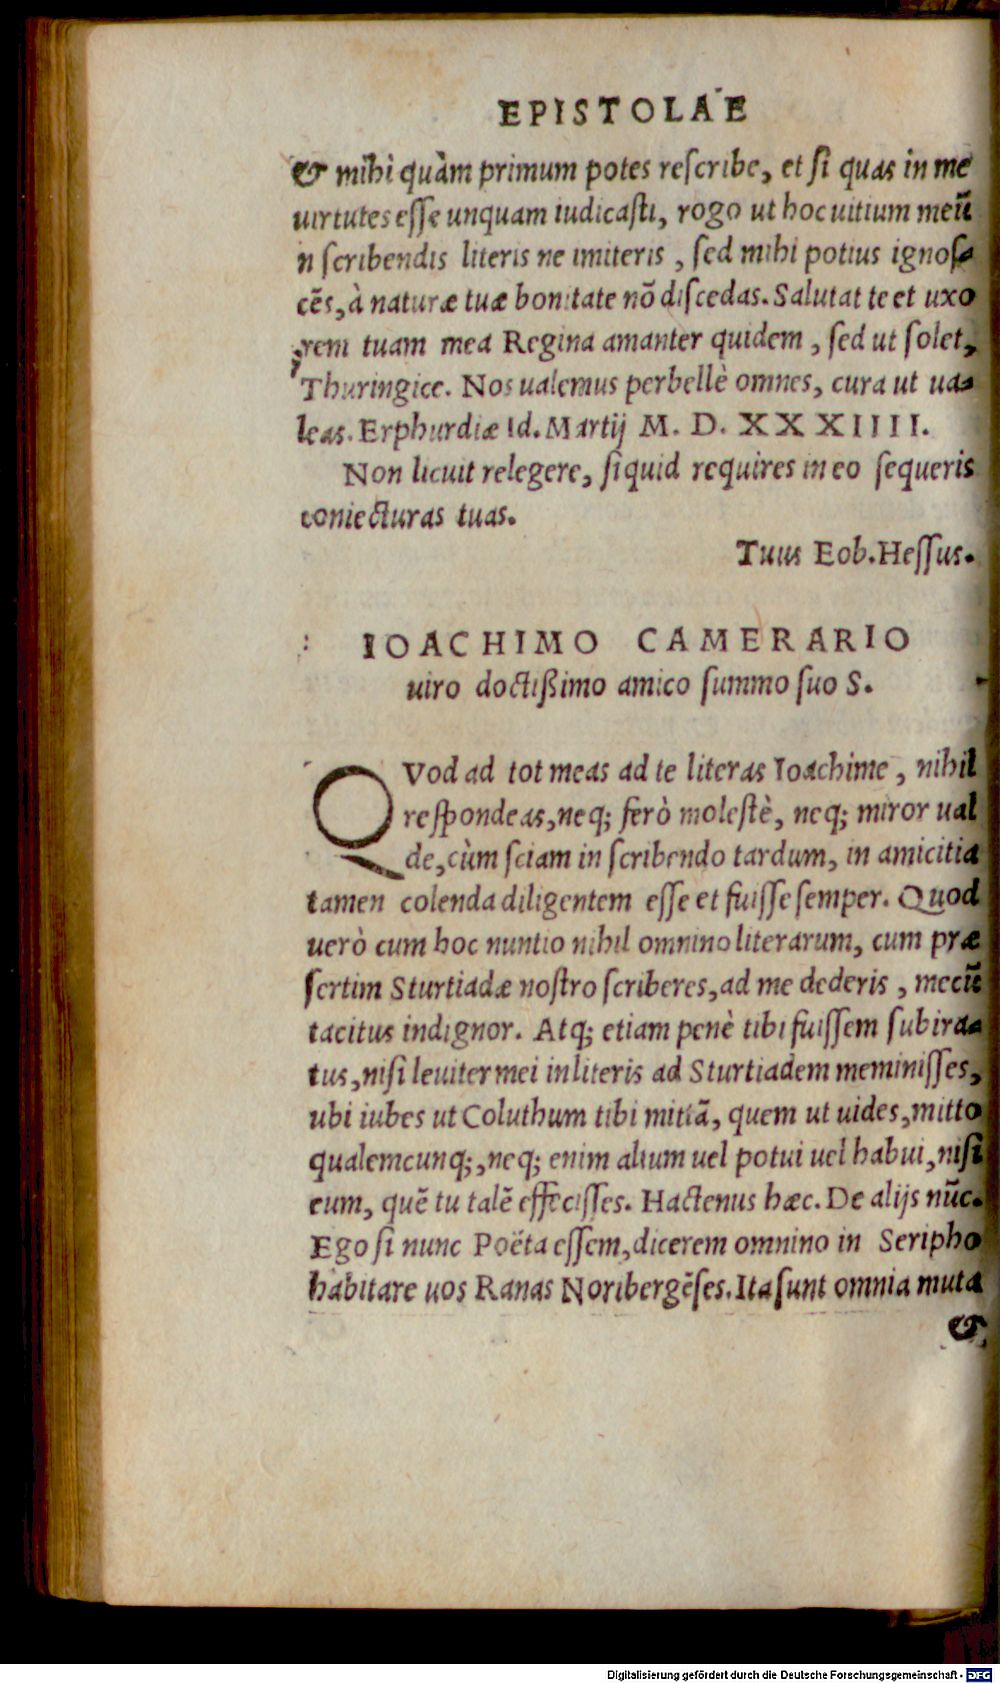 EPISTOLAE
& mihi quàm primum potes reſcribe, et ſi quas in me
uirtutes eſſe unquam iudicaſti, rogo ut hoc uitium meũ
in ſcribendis literis ne imiteris, ſed mihi potius ignoſ-
cẽs, à naturæ tuæ bonitate nõ diſcedas. Salutat te et uxo
rem tuam mea Regina amanter quidem, ſed ut ſolet,
Thuringice. Nos ualemus perbellè omnes, cura ut ua-
leas. Erphurdiæ Id. Martij M. D. XXXIIII.
Non licuit relegere, ſi quid requires in eo ſequeris
coniecturas tuas.
Tuus Eob. Heſſus.
IOACHIMO CAMERARIO
uiro doctißimo amico ſummo ſuo S.
QVod ad tot meas ad te literas Ioachime, nihil
reſpondeas, neq; ferò moleſtè, neq; miror ual
de, cùm ſciam in ſcribendo tardum, in amicitia
tamen colenda diligentem eſſe et fuiſſe ſemper. Quod
uerò cum hoc nuntio nihil omnino literarum, cum præ
ſertim Sturtiadæ noſtro ſcriberes, ad me dederis, mecũ
tacitus indignor. Atq; etiam penè tibi fuiſſem ſubira-
tus, niſi leuiter mei in literis ad Sturtiadem meminiſſes,
ubi iubes ut Coluthum tibi mittã, quem ut uides, mitto
qualemcunq;, neq; enim alium uel potui uel habui, niſi
eum, quẽ tu talẽ effeciſſes. Hactenus hæc. De alijs nũc.
Ego ſi nunc Poëta eſſem, dicerem omnino in Seripho
habitare uos Ranas Noribergẽſes. Ita ſunt omnia muta
&
Digitalisierung gefördert durch die Deutsche Forschungsgemeinschaft - DFG